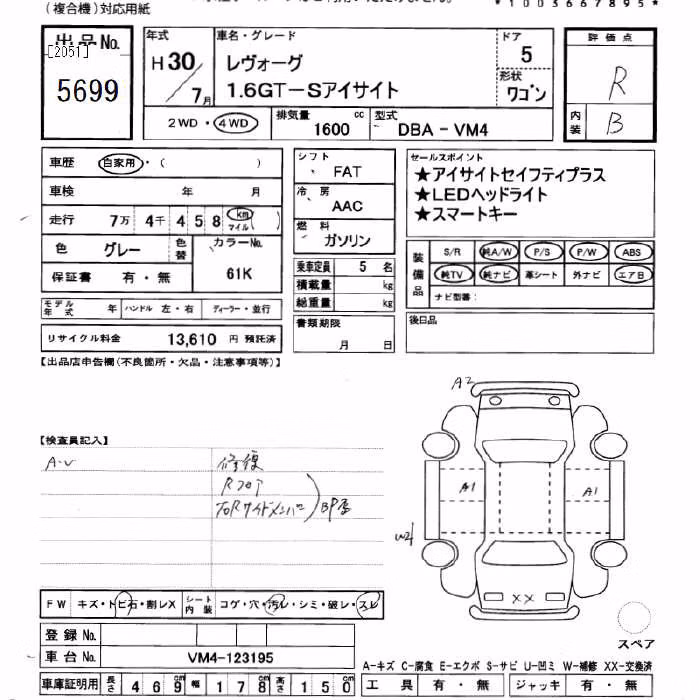 (複合機)対応用紙
*1003667895*
出品No.
[2051]
5699
年式
H30/7月
車名・グレード
レヴォーグ
1.6GT-Sアイサイト
ドア
5
形状
ワゴン
2WD・4WD
排気量
1600 cc
型式
DBA-VM4
評価点
R
内装
B
車歴 自家用・( )
車検 年 月
走行 7万 4千 4 5 8 km マイル ( )
色 グレー 色替 カラーNo. 61K
保証書 有・無
モデル年式 年 ハンドル 左・右 ディーラー・並行
リサイクル料金 13,610 円 預託済
シフト
FAT
冷房
AAC
燃料
ガソリン
乗車定員 5 名
積載量 kg
総重量 kg
書類期限
月 日
セールスポイント
★アイサイトセイフティプラス
★LEDヘッドライト
★スマートキー
装備品
S/R 純A/W P/S P/W ABS
純TV 純ナビ 革シート 外ナビ エアB
ナビ型番:
後日品
【出品店申告欄(不良箇所・欠品・注意事項等)】
【検査員記入】
A・U
修復
Rフロア
右Rサイドメンバー
BP歪
A2
A1
A1
W2
XX
スペア
FW キズ・トビ石・割レX シート内装 コゲ・穴・汚レ・シミ・破レ・スレ
登録No.
車台No. VM4-123195
車庫証明用 長さ 469cm 幅 178cm 高さ 150cm
A-キズ C-腐食 E-エクボ S-サビ U-凹ミ W-補修 XX-交換済
工具 有・無 ジャッキ 有・無